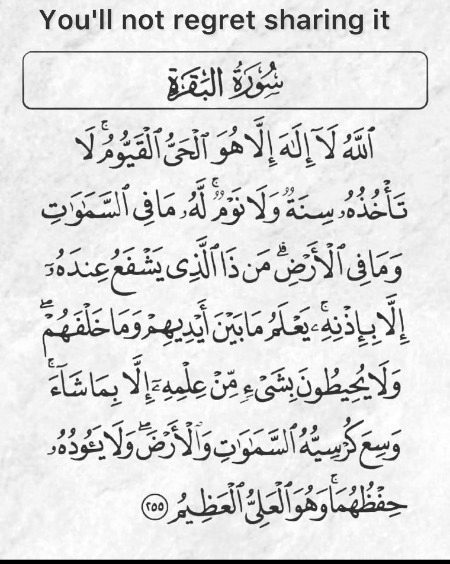 You'll not regret sharing it
سُورَةُ البَقَرَةِ
ٱللَّهُ لَآ إِلَٰهَ إِلَّا هُوَ ٱلْحَىُّ ٱلْقَيُّومُ ۚ لَا
تَأْخُذُهُۥ سِنَةٌ وَلَا نَوْمٌ ۚ لَّهُۥ مَا فِى ٱلسَّمَٰوَٰتِ
وَمَا فِى ٱلْأَرْضِ ۗ مَن ذَا ٱلَّذِى يَشْفَعُ عِندَهُۥٓ
إِلَّا بِإِذْنِهِۦ ۚ يَعْلَمُ مَا بَيْنَ أَيْدِيهِمْ وَمَا خَلْفَهُمْ ۖ
وَلَا يُحِيطُونَ بِشَىْءٍ مِّنْ عِلْمِهِۦٓ إِلَّا بِمَا شَآءَ ۚ
وَسِعَ كُرْسِيُّهُ ٱلسَّمَٰوَٰتِ وَٱلْأَرْضَ ۖ وَلَا يَـُٔودُهُۥ
حِفْظُهُمَا ۚ وَهُوَ ٱلْعَلِىُّ ٱلْعَظِيمُ ٢٥٥